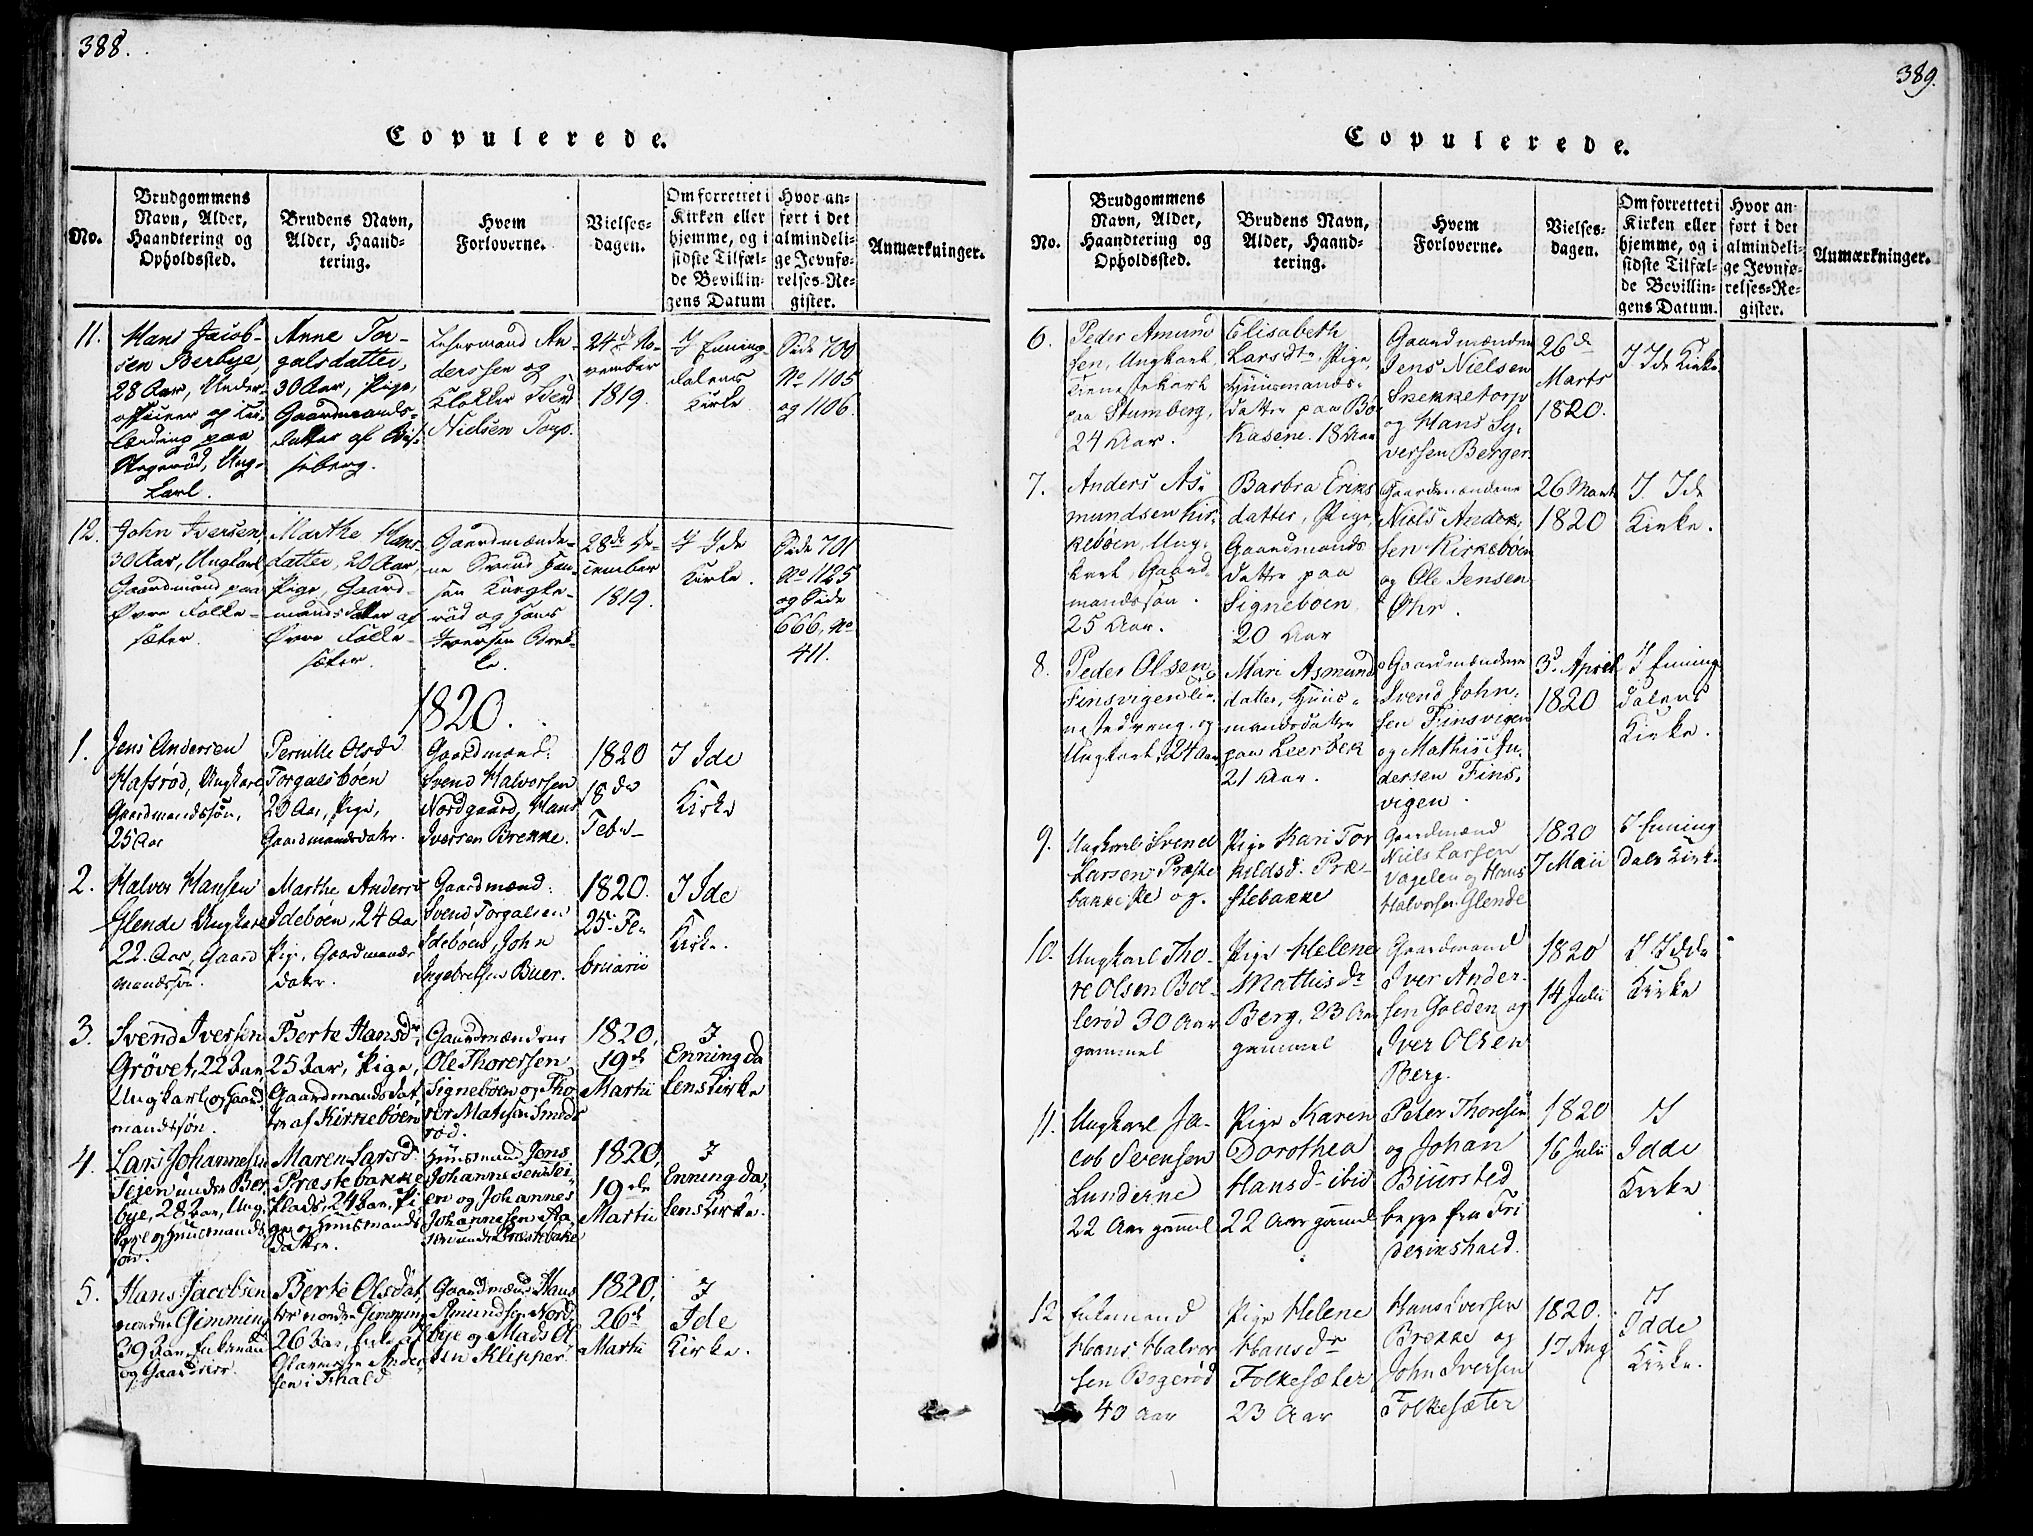 388.
Copulerede.
No.
Brudgommens
Navn, Alder,
Haandtering og
Opholdssted.
Brudens Navn,
Alder, Haand-
tering.
Hvem
Forloverne.
Vielses-
dagen.
Om forrettet i
Kirken eller
hjemme, og i
sidste Tilfæl-
de Bevillin-
gens Datum
Hvor an-
ført i det
almindeli-
ge Jevnfø-
relses-Re-
gister.
Anmærkninger.
11.
Hans Jacob-
sen Berbye,
28 Aar, Under-
officeer og
paa
Ung-
karl.
Anne Tor-
galsdatter,
30 Aar, Pige,
Gaardmands-
datter af
seberg.
Lehnsmand An-
derssen og
Klokker
Nielsen Torp.
24de No-
vember
1819.
I Enning-
dalens
Kirke
Side 700
No 1105
og 1106.
12.
John Iversen,
30 Aar, Ungkarl
Gaardmand paa
Øvre Folke-
sæter.
Marthe Hans-
datter, 20 Aar,
Pige, Gaard-
mandsdatter af
Øvre Folke-
sæter.
Gaardmænde-
ne Svend
sen
rød og Hans
Iversen Brek-
ke.
28de De-
cember
1819.
I Ide
Kirke.
Side 701
No 1125
og Side
666, No
411.
1820.
1.
Jens Andersen
Hafsrød, Ungkarl,
Gaardmandssøn,
25 Aar
Pernille Olsdr
Torgalsbøen
20 Aar, Pige,
Gaardmandsdatr.
Gaardmænd:
Svend Halvorsen
Nordgaard, Hans
Iversen Brekke.
1820
18de
Febr
I Ide
Kirke
2.
Halvor Hansen
Glende Ungkarl
22 Aar, Gaard
mandssøn.
Marthe Andersd
Idebøen, 24 Aar
Pige, Gaardmands
datter.
Gaardmænd:
Svend Torgalsen
Idebøen, John
Ingebretsen Buer.
1820.
25 Fe-
bruarii
I Ide
Kirke.
3.
Svend Iversen
Grøvet, 22 Aar
Ungkarl og Gaard
mandssøn.
Berte Hansdr,
25 Aar, Pige,
Gaardmandsdat
ter af Kirkebøen
Gaardmændene
Ole Thoressen
Signebøen og Tho
rer Mathisen Smeds
rød.
1820,
19de
Martii
I
Enningda
lens Kirke
4.
Lars Johannesen
Teien under Ber
bye, 28 Aar, Ung
karl og Huusmands
søn.
Maren Larsd.
Præstebakke
Plads, 24 Aar, Pi
ge og Huusmands
datter.
Huusmand Jens
Johannesen Tei-
en og Johannes
Johannesen
under Præstebakke
1820,
19de
Martii
I
Enningda,
lens Kirke.
5.
Hans Jacobsen
nordre Gimming
39 Aar, Enkemand
og Gaardbruger
Berte Olsdat,
ter nordre Gimming
26 Aar, Enke af
Ander
sen i Fhald
Gaardmænd Hans
Amundsen Nord,
bye og Mads Ol
sen Klipper
1820,
26de
Martii
I
Ide
Kirke.
389.
Copulerede.
No.
Brudgommens
Navn, Alder,
Haandtering og
Opholdssted.
Brudens Navn,
Alder, Haand-
tering.
Hvem
Forloverne.
Vielses-
dagen.
Om forrettet i
Kirken eller
hjemme, og i
sidste Tilfæl-
de Bevillin-
gens Datum.
Hvor an-
ført i det
almindeli-
ge Jevnfø-
relses-Re-
gister.
Anmærkninger.
6.
Peder Amund
sen, Ungkarl,
Tienestekarl
paa Stumberg,
24 Aar.
Elisabeth
Larsdtr, Pige,
Huusmands-
datter paa Bø
kasene. 18 Aar
Gaardmændene
Jens Nielsen
Snekketorp
og Hans Sy,
versen Berger.
26de
Marts
1820.
I Ide Kirke
7.
Anders As-
mundsen Kir,
kebøen, Ung-
karl, Gaard-
mandssøn.
25 Aar.
Barbra Eriks
datter, Pige,
Gaardmands
datter paa
Signebøen
20 Aar
Gaardmændene
Niels Ander,
sen Kirkebøen
og Ole Jensen
Øhr.
26 Marts
1820
I Ide
Kirke.
8.
Peder Olsen
Finsvigen
nestedreng og
Ungkarl, 24 Aar
Mari Asmunds
datter, Huus-
mandsdatter
paa Leerbek
21 Aar.
Gaardmændene
Svend John-
sen Finsvigen
og Mathiis An
dersen Fins,
vigen.
3d April
1820
I Enning
dalens
Kirke.
9.
Ungkarl Svend
Larsen Præste
bakke og.
Pige Kari Tor
kildsd. Præ-
stebakke
Gaardmænd
Niels Larsen
Vagelen og Hans
Halvorsen Glende
1820
7 Maii
I Enning
dals Kirke
10.
Ungkarl Tho-
re Olsen Bøl-
lerød 30 Aar
gammel
Pige Helene
Mathisdr
Berg, 23 Aar
gammel
Gaardmænd
Iver Ander-
sen Golden og
Iver Olsen
Berg.
1820
14 Julii
I Idde
Kirke
11.
Ungkarl Ja-
cob Svensen
Lunderne
22 Aar gammel
Pige Karen
Dorothea
Hansdr ibid
22 Aar gammel
Peter Thoresen
og Johan
Biørsted
begge fra Fri
derikshald.
1820
16 Julii
I
Idde
Kirke
12
Enkemand
Hans Halvor
sen Bøgerød
40 Aar
Pige Helene
Hansdr
Folkesæter
23 Aar
Hans Iversen
Brekke og
John Iversen
Folkesæter
1820.
17 Aug
I
Idde
Kirke.